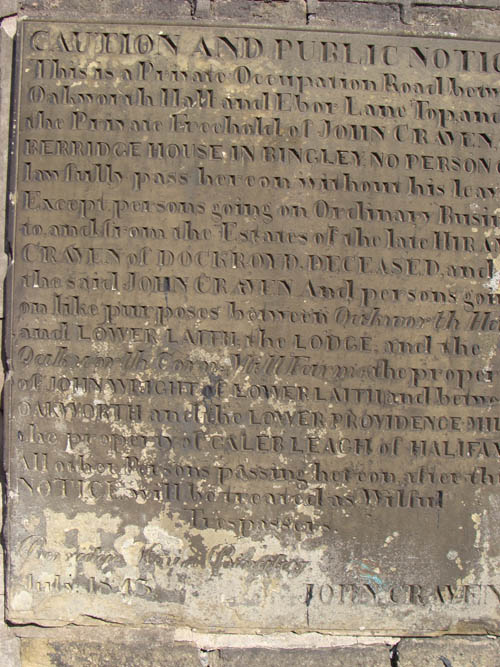 CAUTION AND PUBLIC NOTIC
This is a Private Occupation Road betw
Oakworth Hall and Ebor Lane Top, and
the Private Freehold of JOHN CRAVEN
BERRIDGE HOUSE, IN BINGLEY, NO PERSON C
lawfully pass hereon without his leav
Except, persons going on Ordinary Busin
to, and from the Estates of the late HIRA
CRAVEN of DOCKROYD, DECEASED, and
the said JOHN CRAVEN And persons goi
on like purposes between Oakworth Ha
and LOWER LAITH, the LODGE, and the
Oakworth Corn Mill Farm, the proper
of JOHN WRIGHT of LOWER LAITH and bein
OAKWORTH and the LOWER PROVIDENCE MIL
the property of CALEB LEACH of HALIFAX
All other Persons passing hereon after th
NOTICE will be treated as Wilful
Trespassers.
July, 1845
JOHN CRAVEN